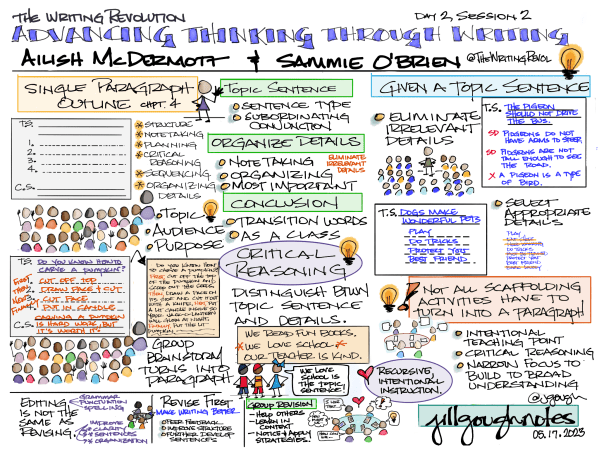 THE WRITING REVOLUTION
DAY 2, SESSION 2
ADVANCING THINKING THROUGH WRITING
AILISH McDERMOTT & SAMMIE O'BRIEN @THEWRITINGREVOL
SINGLE PARAGRAPH
OUTLINE CHPT. 4
T.S.
1.
2.
3.
4.
C.S.
* STRUCTURE
* NOTETAKING
* PLANNING
* CRITICAL
REASONING
* SEQUENCING
* ORGANIZING
DETAILS
TOPIC
AUDIENCE
PURPOSE
T.S. DO YOU KNOW HOW TO
CARVE A PUMPKIN?
FIRST 1. CUT OFF TOP
2. DRAW FACE & CUT
3. CUT FACE
4. PUT IN CANDLE
CARVING A PUMPKIN
C.S. IS HARD WORK, BUT
IT'S WORTH IT.
DO YOU KNOW HOW
TO CARVE A PUMPKIN?
GROUP
BRAINSTORM
TURNS INTO
PARAGRAPH
TOPIC SENTENCE
SENTENCE TYPE
SUBORDINATING
CONJUNCTION
ORGANIZE DETAILS
NOTETAKING
ORGANIZING
MOST IMPORTANT
ELIMINATE
IRRELEVANT
DETAILS
CONCLUSION
TRANSITION WORDS
AS A CLASS
CRITICAL
REASONING
DISTINGUISH BTWN
TOPIC SENTENCE
AND DETAILS.
WE READ FUN BOOKS.
* WE LOVE SCHOOL *
OUR TEACHER IS KIND.
WE LOVE
SCHOOL IS
THE TOPIC
SENTENCE!
GIVEN A TOPIC SENTENCE
ELIMINATE
IRRELEVANT
DETAILS
T.S. THE PIGEON
SHOULD NOT DRIVE
THE BUS.
SD PIGEONS DO NOT
HAVE ARMS TO STEER
SD PIGEONS ARE NOT
TALL ENOUGH TO SEE
THE ROAD.
X A PIGEON IS A TYPE
OF BIRD.
T.S. DOGS MAKE
WONDERFUL PETS
PLAY
DO TRICKS
PROTECT YOU
BEST FRIEND
SELECT
APPROPRIATE
DETAILS
PLAY
DO TRICKS
PROTECT YOU
BEST FRIEND
NOT ALL SCAFFOLDING
ACTIVITIES HAVE TO
TURN INTO A PARAGRAPH
INTENTIONAL
TEACHING POINT
CRITICAL REASONING
NARROW FOCUS TO
BUILD TO BROAD
UNDERSTANDING
RECURSIVE,
INTENTIONAL
INSTRUCTION.
EDITING
IS NOT THE
SAME AS
REVISING.
GRAMMAR
PUNCTUATION
SPELLING
IMPROVE
* CLARITY
* SENTENCES
* ORGANIZATION
REVISE FIRST
MAKE WRITING BETTER
OFFER FEEDBACK
IMPROVE STRUCTURE
FURTHER DEVELOP
SENTENCES
GROUP REVISION
- HELP OTHERS
- LEARN IN
CONTEXT
- NOTICE & APPLY
STRATEGIES.
@jgough
jillgoughnotes
05.17.2023